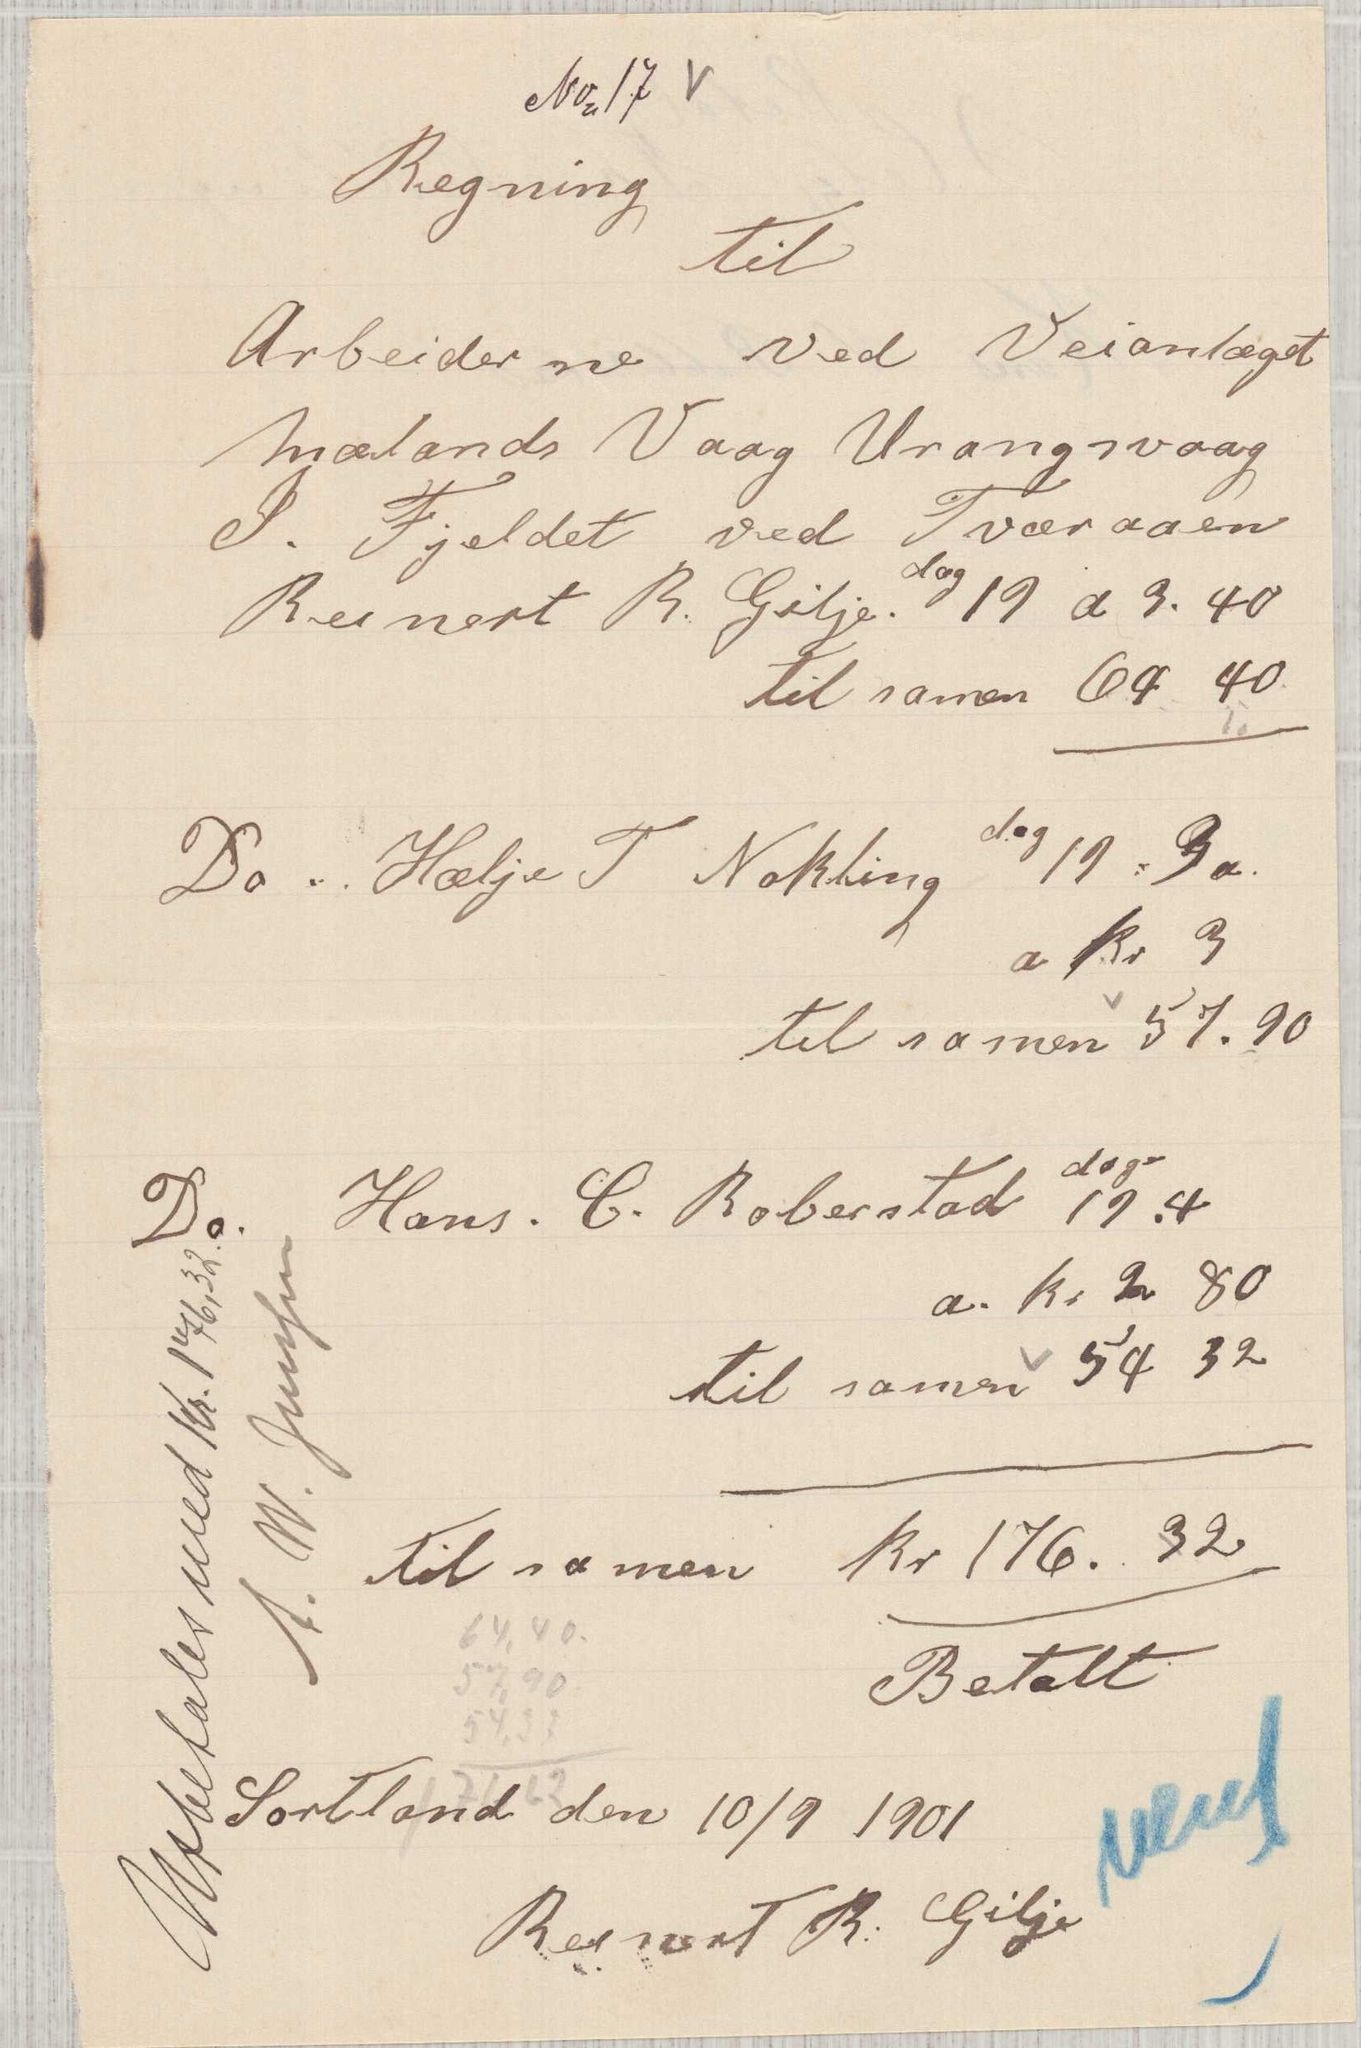 No 17 V
Regning
til
Arbeiderne ved Veianlæget
Mælands Vaag Urangsvaag
I. Fjeldet ved Tværaaen
Reinert R. Gilje. dag 19 a 3. 40
til samen 64 40
Do .. Hælje T Nokling dag 19. 3 a.
a Kr 3
til samen 57. 90
Do. Hans. C. Roberstad dage 19.4
a. kr 2 80
til samen 54 32
til samen Kr 176. 32
Betalt
64,40.
57,90.
54,32
Sortland den 10/9 1901
Reinert R. Gilje
Udbetales med Kr. 176,32.
A. W.